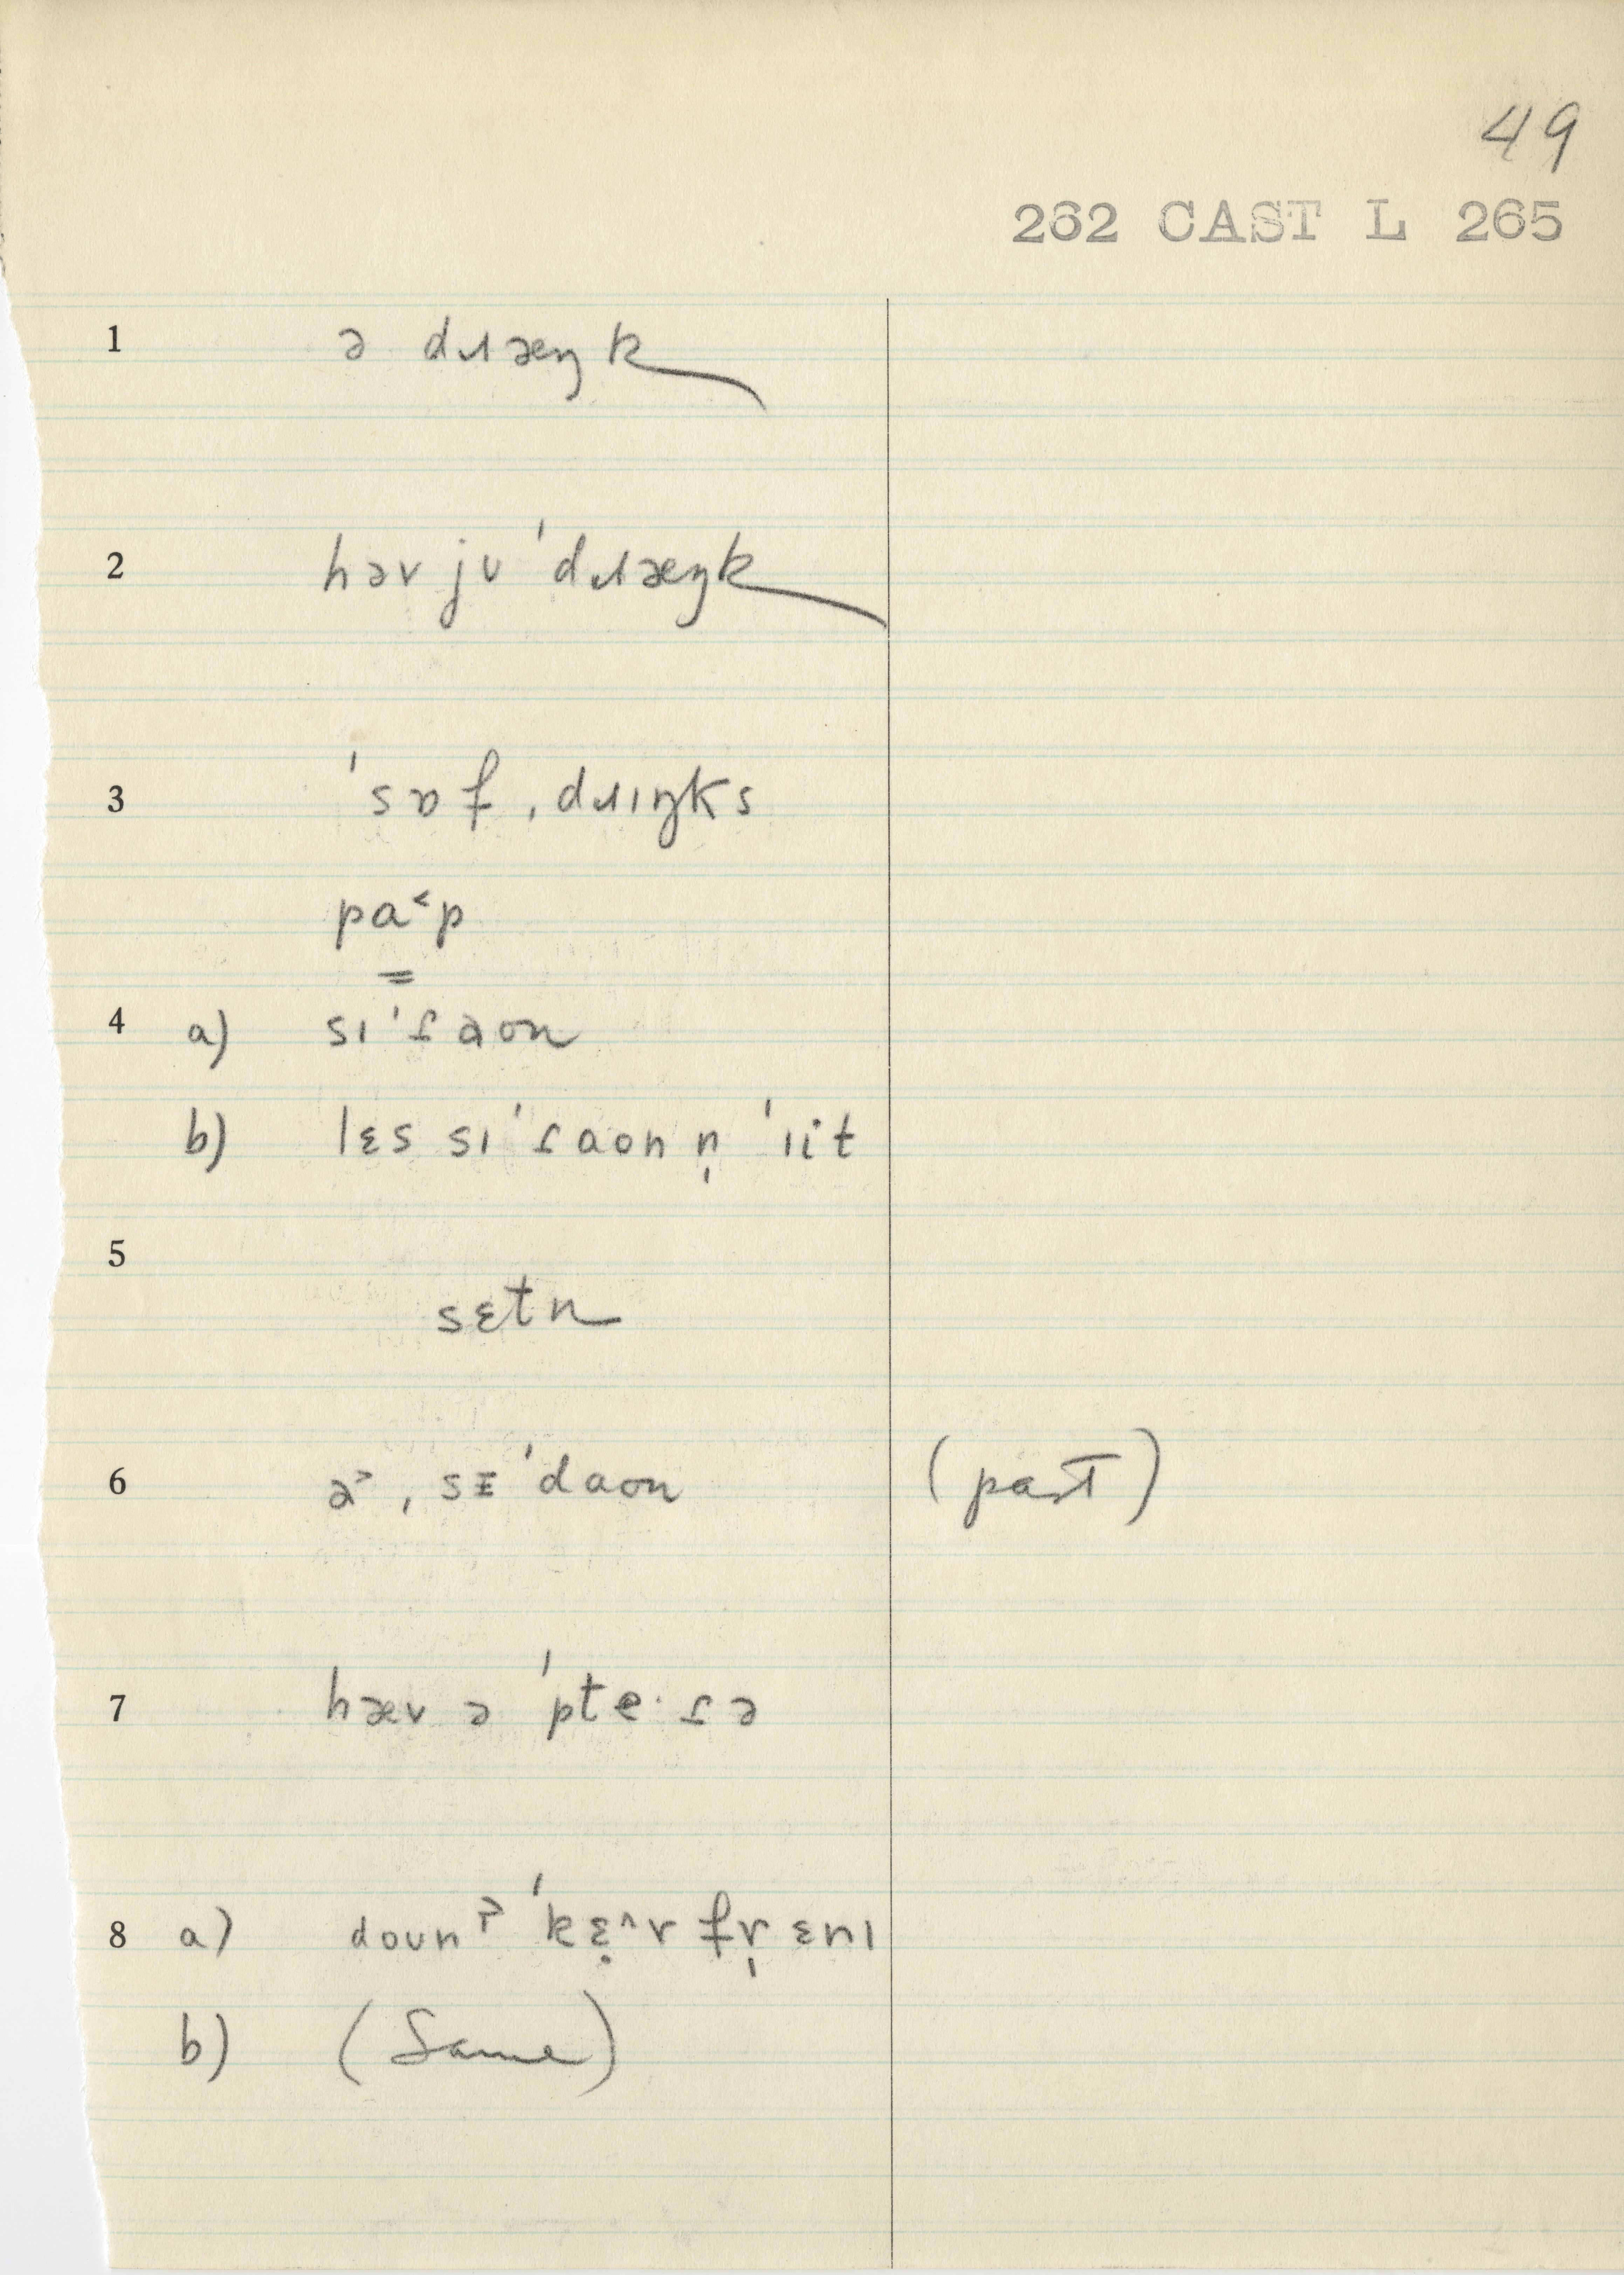 49
262 CAST L 265
1 ə dɹæŋk
2 həv jʊ 'dɹæŋk
3 'sɒf ˌdɹɪŋks
pa˂p
=
4 a) sɪ'ɾaʊn
b) lɛs sɪ'ɾaʊn n̩ 'iit
5
sɛtn
6 ə˃ , sɪ'daʊn (past)
7 hæv ə 'pteˑɾə
8 a) doʊnˀ 'kɛ̣^r fr̩ ɛnɪ
b) (Same)